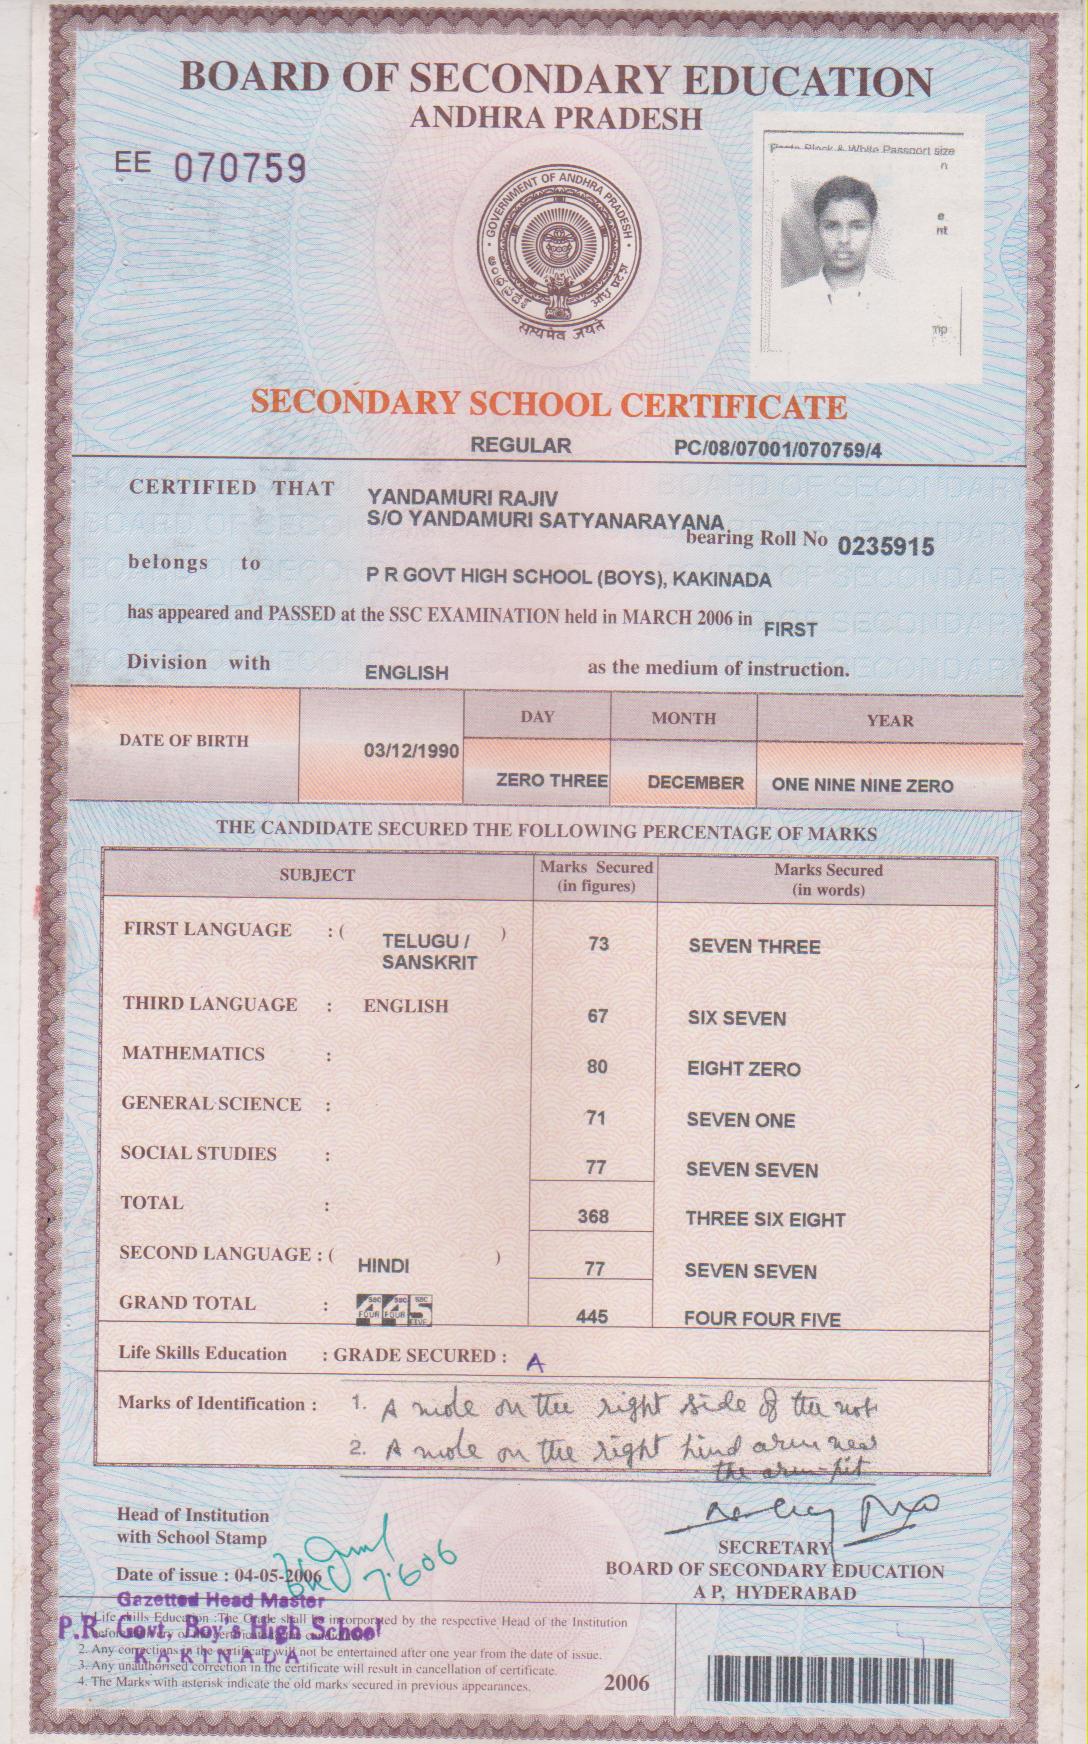 BOARD OF SECONDARY EDUCATION
ANDHRA PRADESH
EE 070759
Paste Black & White Passport size
n
e
nt
GOVERNMENT OF ANDHRA PRADESH
सत्यमेव जयते
SECONDARY SCHOOL CERTIFICATE
REGULAR PC/08/07001/070759/4
CERTIFIED THAT YANDAMURI RAJIV
S/O YANDAMURI SATYANARAYANA
bearing Roll No 0235915
belongs to
P R GOVT HIGH SCHOOL (BOYS), KAKINADA
has appeared and PASSED at the SSC EXAMINATION held in MARCH 2006 in FIRST
Division with ENGLISH as the medium of instruction.
DAY MONTH YEAR
DATE OF BIRTH 03/12/1990
ZERO THREE DECEMBER ONE NINE NINE ZERO
THE CANDIDATE SECURED THE FOLLOWING PERCENTAGE OF MARKS
SUBJECT Marks Secured (in figures) Marks Secured (in words)
FIRST LANGUAGE : ( TELUGU / ) 73 SEVEN THREE
SANSKRIT
THIRD LANGUAGE : ENGLISH 67 SIX SEVEN
MATHEMATICS : 80 EIGHT ZERO
GENERAL SCIENCE : 71 SEVEN ONE
SOCIAL STUDIES : 77 SEVEN SEVEN
TOTAL : 368 THREE SIX EIGHT
SECOND LANGUAGE : ( HINDI ) 77 SEVEN SEVEN
GRAND TOTAL : 445 445 FOUR FOUR FIVE
Life Skills Education : GRADE SECURED : A
Marks of Identification : 1. A mole on the right side of the
2. A mole on the right hind arm near
the arm-pit
Head of Institution
with School Stamp
SECRETARY
BOARD OF SECONDARY EDUCATION
A P, HYDERABAD
Date of issue : 04-05-2006
7.6.06
Gazetted Head Master
P.R. Govt. Boy's High School
KAKINADA
1. Life Skills Education :The Grade shall be incorporated by the respective Head of the Institution
2. Any corrections in the certificate will not be entertained after one year from the date of issue.
3. Any unauthorised correction in the certificate will result in cancellation of certificate.
4. The Marks with asterisk indicate the old marks secured in previous appearances.
2006